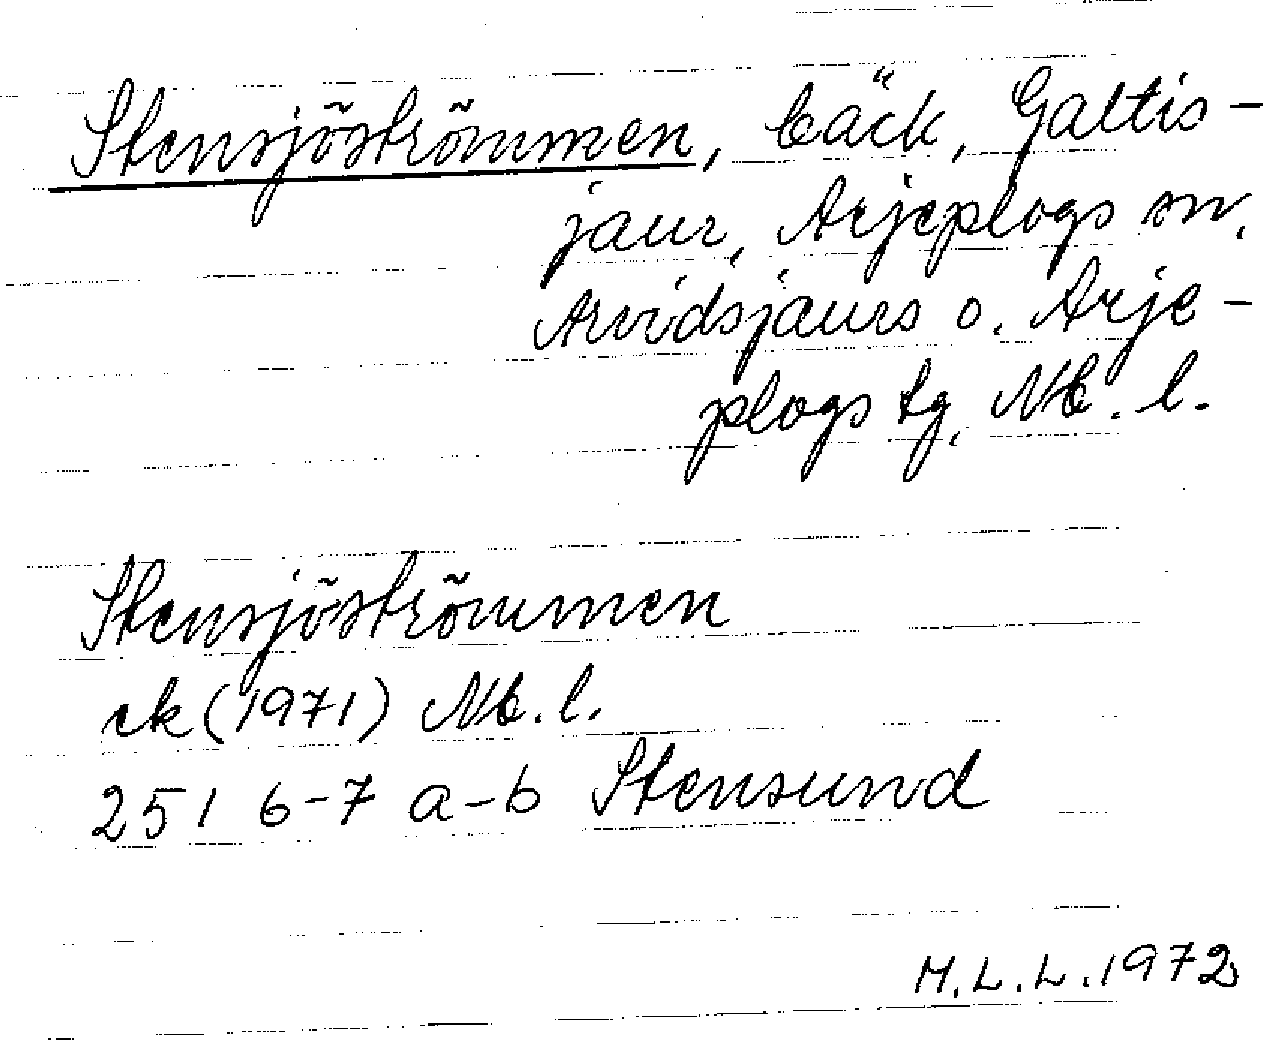 Stensjöströmmen, bäck, Galtis-
jaur, Arjeplogs sn,
Arvidsjaurs o. Arje-
plogs tg, Nb. l.
Stensjöströmmen
ek (1971) Nb. l.
251 6-7 a-b Stensund
M.L.L. 1972